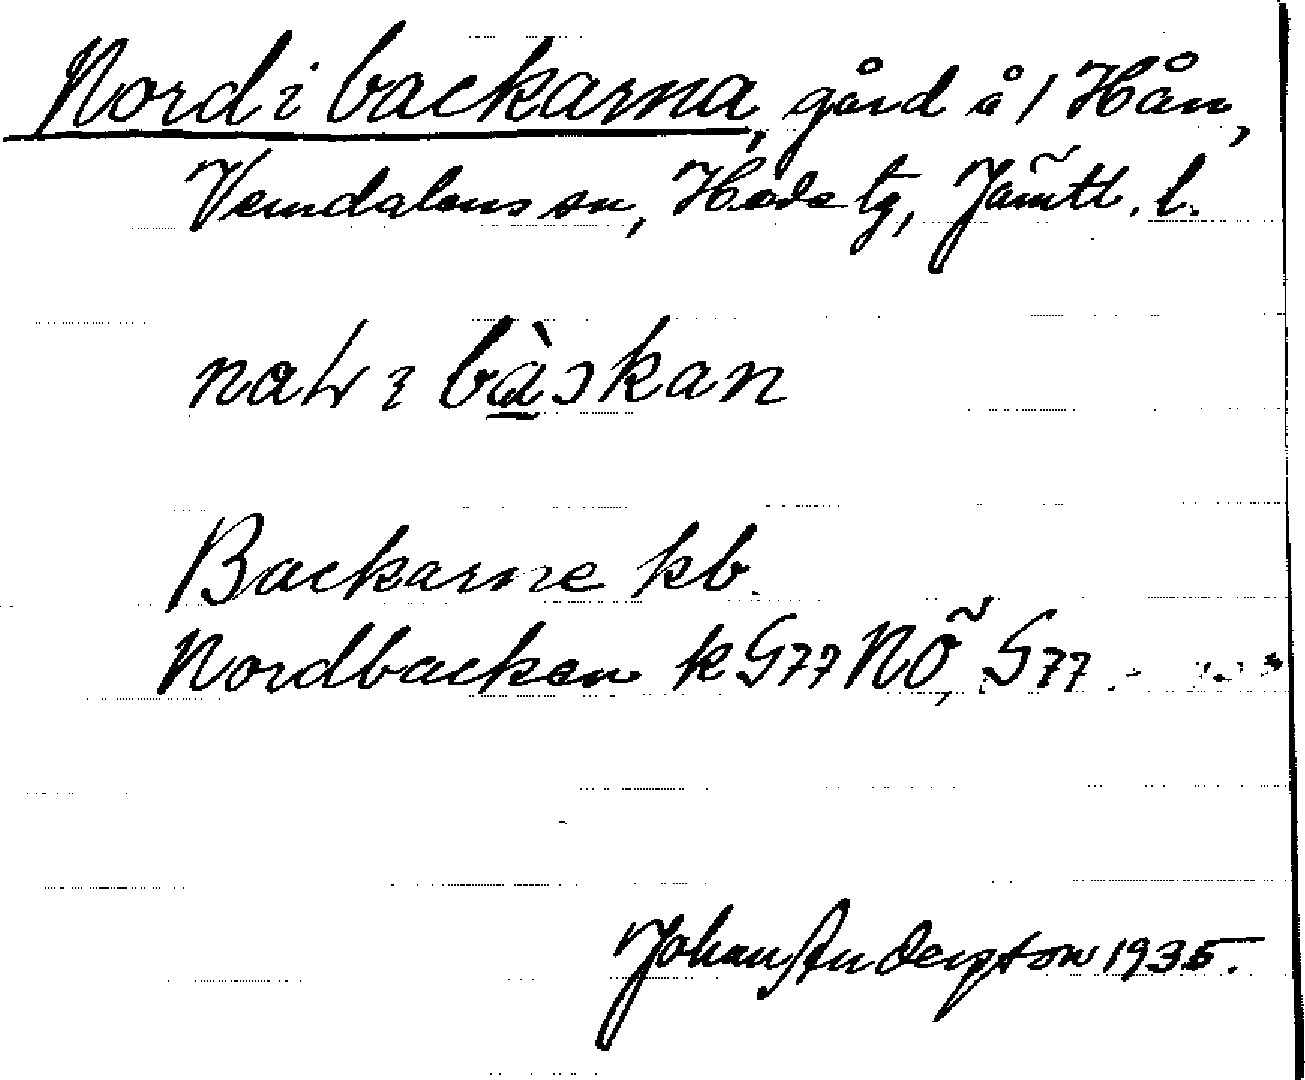 Nord i backarna, gård å 1 Hån,
Vemdalens sn, Hede tg, Jämtl. l.
i bàskan
Backarne kb.
Nordbacken k G77 NÖ, S77
Johan Anderston 1935.